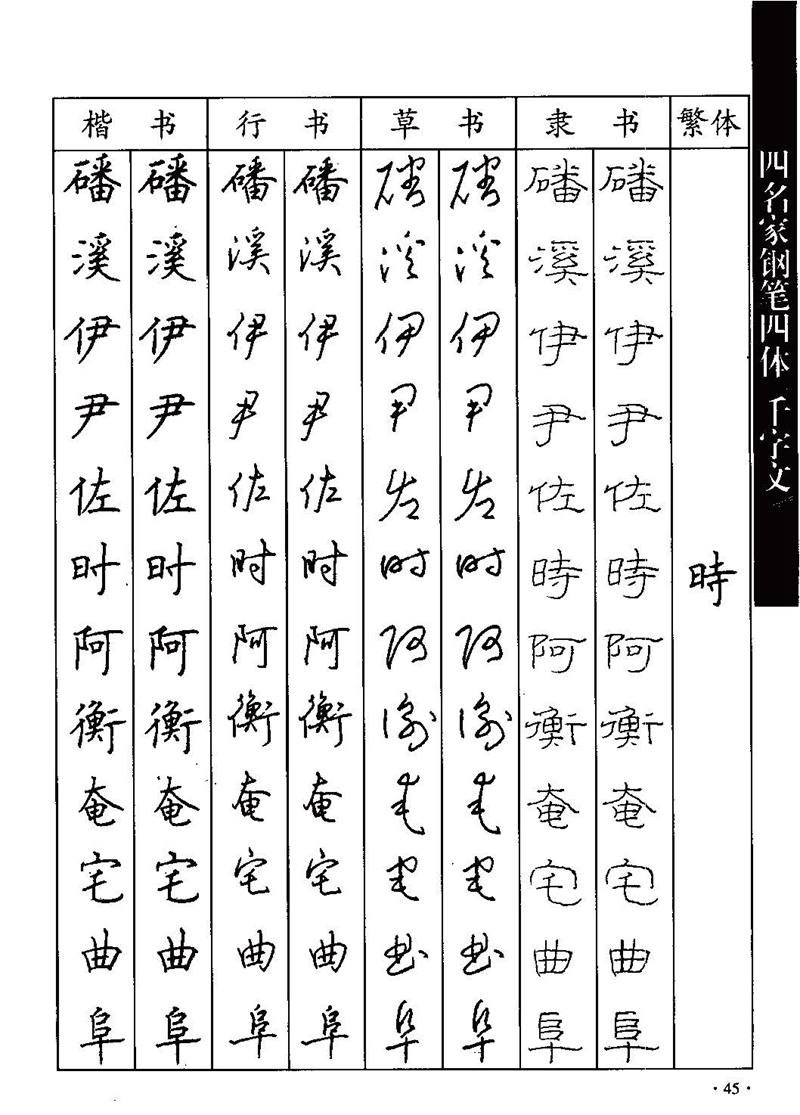 楷 书 行 书 草 书 隶 书 繁体
磻 磻 磻 磻 磻 磻 磻 磻
溪 溪 溪 溪 溪 溪 溪 溪
伊 伊 伊 伊 伊 伊 伊 伊
尹 尹 尹 尹 尹 尹 尹 尹
佐 佐 佐 佐 佐 佐 佐 佐
时 时 时 时 时 时 時 時 時
阿 阿 阿 阿 阿 阿 阿 阿
衡 衡 衡 衡 衡 衡 衡 衡
奄 奄 奄 奄 奄 奄 奄 奄
宅 宅 宅 宅 宅 宅 宅 宅
曲 曲 曲 曲 曲 曲 曲 曲
阜 阜 阜 阜 阜 阜 阜 阜
四名家钢笔四体 千字文
·45·